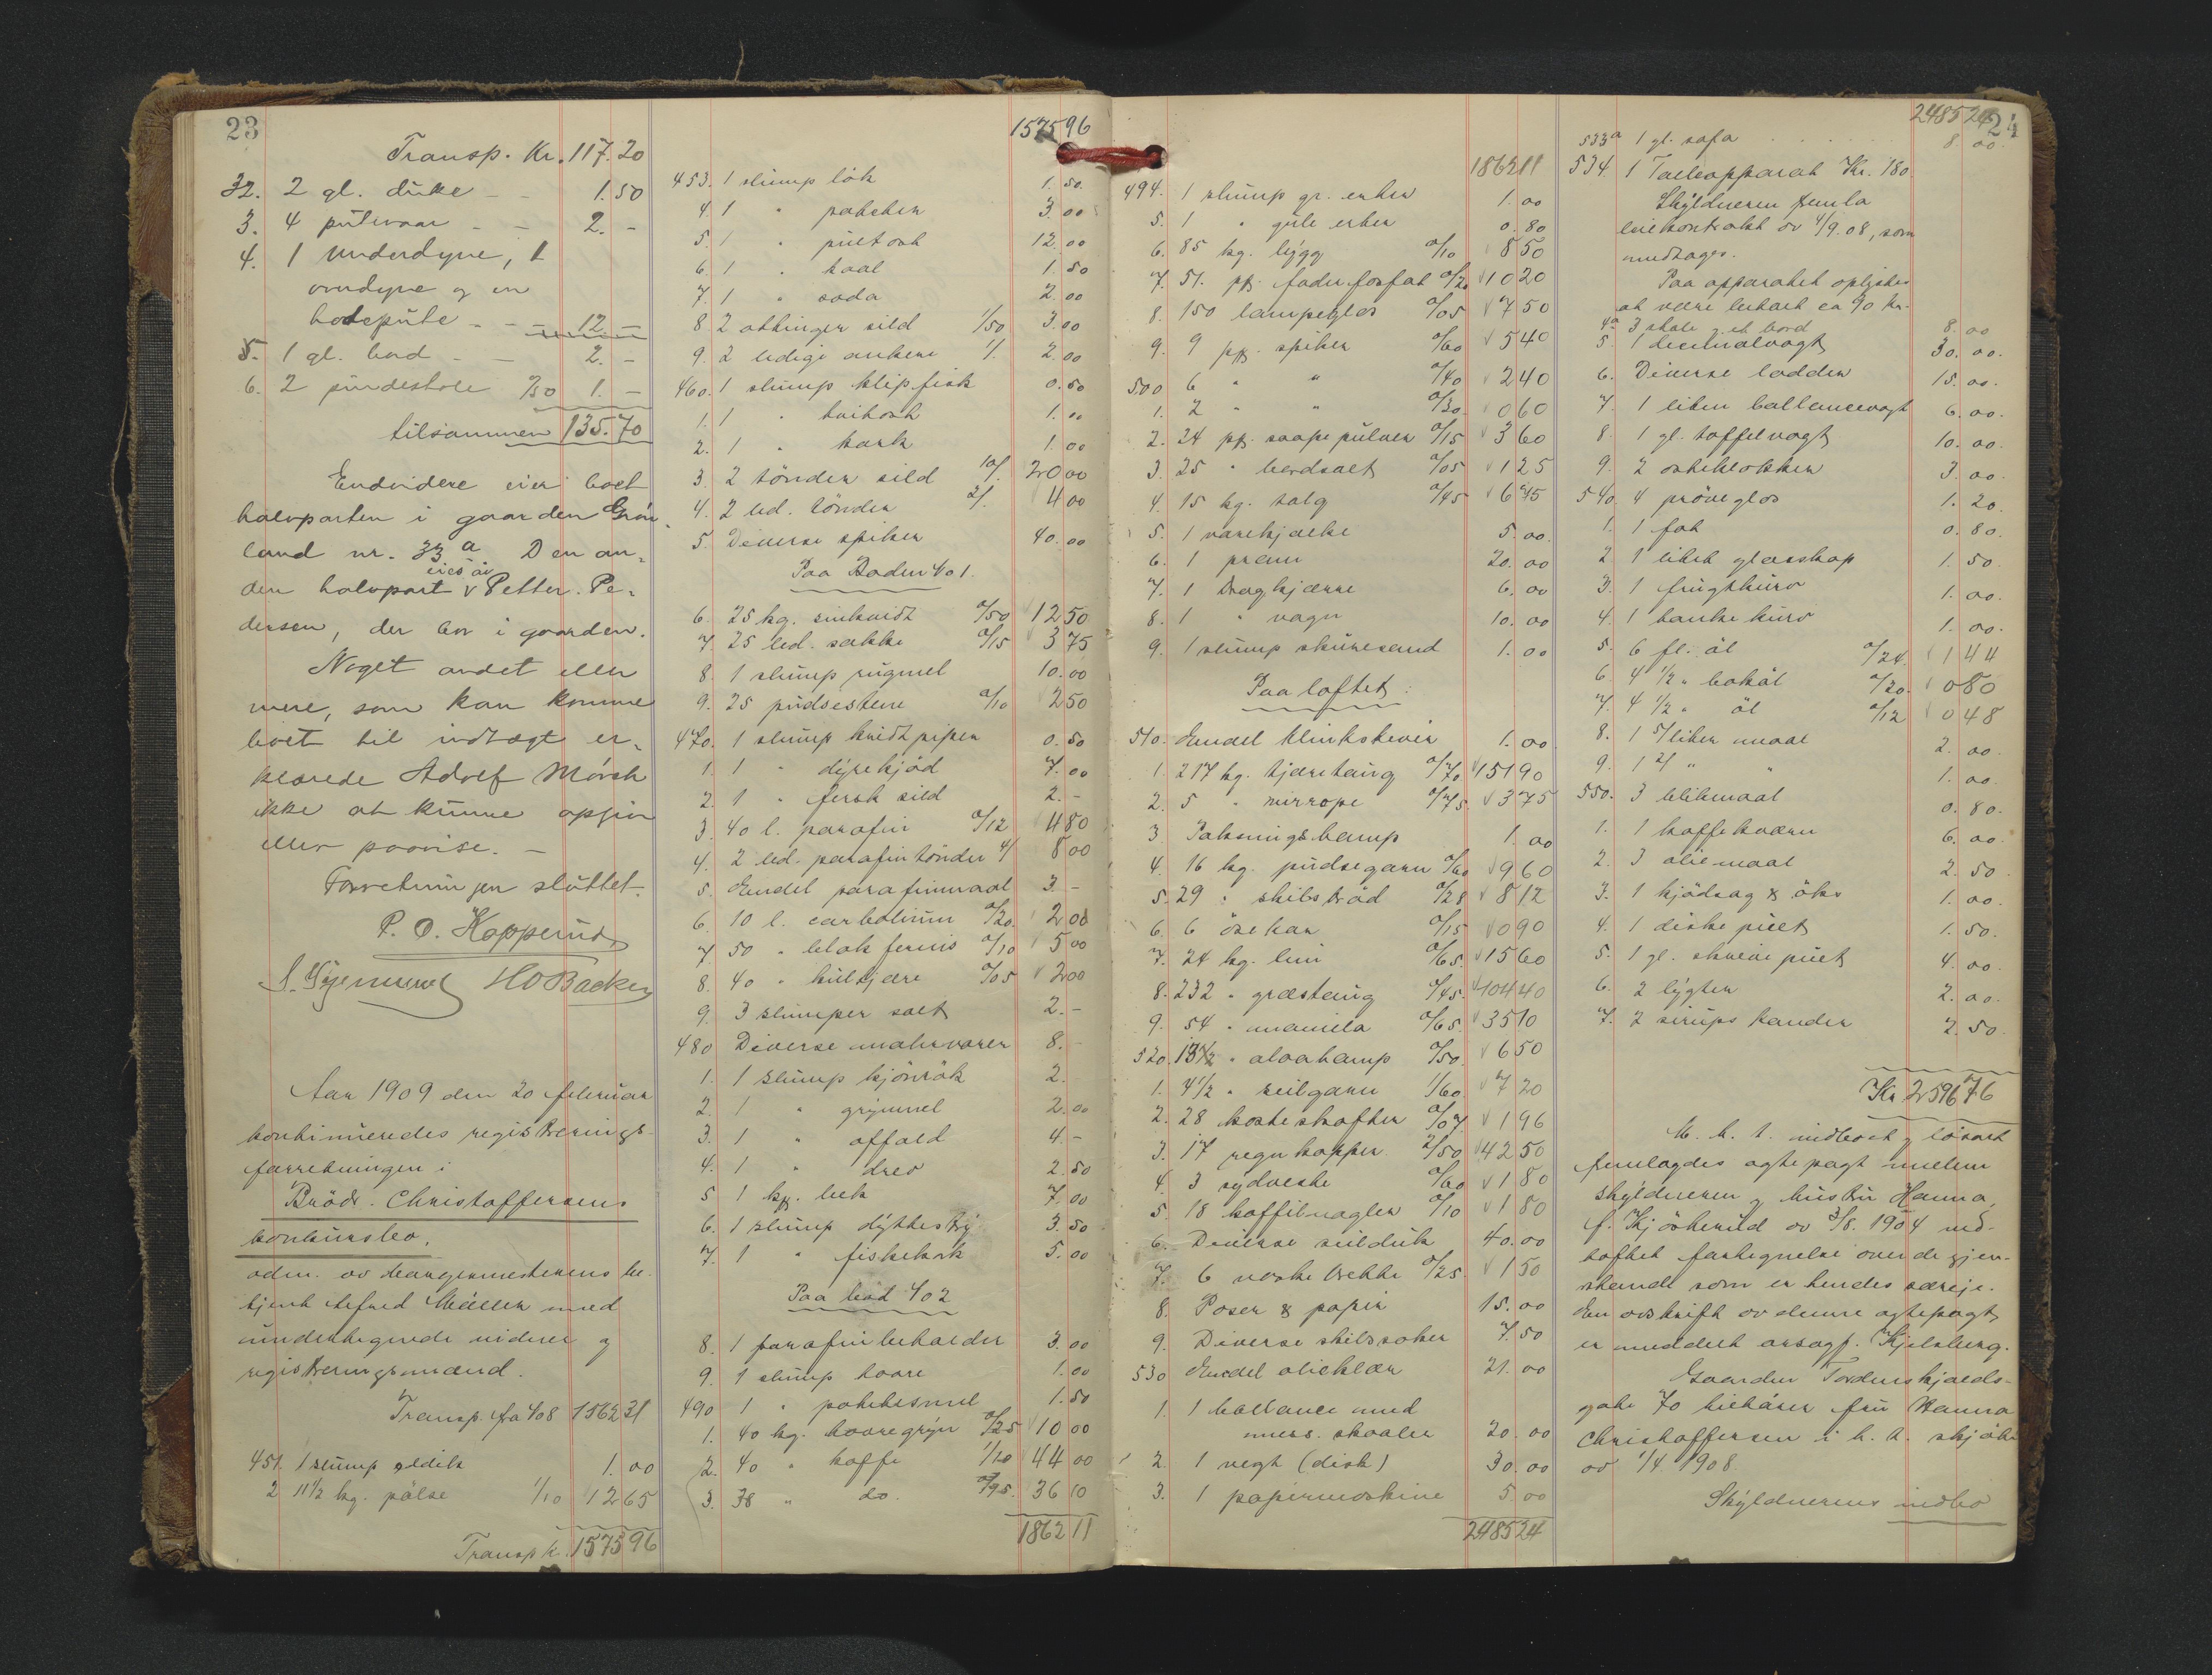 23
Transp. Kr. 117.20
32. 2 gl. duke - - 1.50
3. 4 putevaar - - 2. -
4. 1 underdyne, 1
overdyne og en
hodepute - - 12. -
5. 1 gl. bord - - 2. -
6. 2 pindestole 0/50 1. -
tilsammen 135.70
Endvidere eier boet
halvparten i gaarden Grön-
land nr. 33 a Den an-
eies av
den halvpart v Petter. Pe-
dersen, der bor i gaarden.
Noget andet eller
mere, som kan komme
boet til indtægt er-
klærede Adolf Mörch
ikke at kunne opgive
eller paavise. -
Forretningen sluttet.
P. O. Kopperud
HO Backer
Aar 1909 den 20 februar
kontinueredes registrerings-
forretningen i
Brödr. Christoffersens
konkursbo.
adm. av borgermesterens be-
tjent Alfred Möller med
undertegnede vidner og
registreringsmænd.
Transp. fra 408 1562 31
451. 1 slump eddik 1.00
2 11 1/2 kg. pölse 1/10 12 65
Transp k. 1575 96
1575 96
453. 1 slump lök 1.50
4. 1 " poteter 3.00
5. 1 " pultost 12.00
6. 1 " kaal 1.50
7. 1 " soda 2.00
8 2 ottinger sild 1/50 3.00
9. 2 ledige ankere 1/. 2.00
460. 1 slump klipfisk 0.50
1. 1 " hvitost 1.00
2. 1 " kork 1.00
3. 2 tönder sild 10/. 20 00
4. 2 led. tönder 2/. 4 00
5. Diverse spiker 40.00
Paa Boden 401.
6. 25 kg. sinkvidt 0/50 12 50
7. 25 led. sække 0/15 3 75
8. 1 slump rugmel 10.00
9. 25 pudsestene 0/10 2 50
470. 1 slump kridtpiper 0.50
1. 1 " dyrekjöd 7.00
2. 1 " fersk sild 2. -
3. 40 l. parafin 0/12 4 80
4. 2 led. parafintönder 4/ 8 00
5. Endel parafinmaal 3. -
6. 10 l. carbolinium 0/20. 2 00
7. 50 " blak fernis 0/10 5 00
8. 40 " kultjære 0/05 2 00
9. 3 slumper salt 2. -
480 Diverse malervarer 8. -
1. 1 slump kjönrök 2.
2. 1 " grynmel 2.00
3. 1 " affald 4. -
4. 1 " drev 2.50
5 1 kg. bek 7.00
6. 1 slump dyttestry 3.50
7. 1 " fiskekrok 5.00
Paa bod 402
8. 1 parafinbeholder 3.00
9. 1 slump havre 1.00
490 1 " potetesmel 1.50
1. 40 kg. havregryn 0/25 10 00
2. 40 " kaffe 1/10 44 00
3. 38 " do. 0/95. 36 10
1862 11
1862 11
494. 1 slump gr. erter 1.00
5. 1 " gule erter 0.80
6. 85 kg. lygg 0/10 8 50
7. 51. pk. foder fosfat 0/20 10 20
8. 150 lampeglas 0/05 7 50
9. 9 pk. spiker 0/60 5 40
500 6 " " 0/40 2 40
1. 2 " " 0/30. 0 60
2. 24 pk. saape pulver 0/15 3 60
3. 25 " bordsalt 0/05 1 25
4. 15 kg. talg 0/45 6 75
5. 1 varekjælke 5.00
6. 1 pram 20.00
7. 1 Dragkjærre 6.00
8. 1 " vogn 10.00
9. 1 slump skuresand 1.00
Paa loftet:
510. Endel klinkskiver 1.00
1. 217 kg. tjæretaug 0/70 151 90
2. 5 " mirrope 0/75. 3 75
3 Pakningshamp 1.00
4. 16 kg. pudsegarn 0/60 9 60
5. 29 " skibsbröd 0/28 8 12
6. 6 ösekar 0/15 0 90
7. 24 kg. lin 0/65. 15 60
8. 232 " græstaug 0/45. 104 40
9. 54 " manila 0/65. 35 10
520. 13 1/2 " alvahamp 0/50. 6 50
1. 4 1/2 " seilgarn 1/60. 7 20
2. 28 kosteskafter 0/07 1 96
3. 17 regnkapper 2/50 42 50
4. 3 sydveste 0/60 1 80
5. 18 koffilnagler 0/10 1 80
6. Diverse seilduk 40.00
7. 6 norske trekke 0/25. 1 50
8. Poser & papir 15.00
9. Diverse skibssaker 7.50
530 Endel olieklær 21.00
1. 1 ballance med
mess. skaaler 20.00
2. 1 vegt (disk) 30.00
3. 1 papirmaskine 5.00
2485 24
2485 24
24
533a 1 gl. sofa 8.00.
534. 1 Talleapparat Kr. 180.
Skyldneren femla
leiekontrakt av 4/9.08, som
medtages.
Paa apparatet oplystes
at være betalt ca 90 kr.
4a 3 stole og et bord 8.00
5. 1 decimalvægt 30.00.
6. Diverse lodder 15.00.
7. 1 liten ballancevegt 6.00.
8. 1 gl. taffelvegt 10.00.
9. 2 osteklokker 3.00.
540. 4 pröveglas 1.20.
1. 1 fat 0.80.
2. 1 litet glasskap 1.50.
3. 1 frugtkurv 1.00.
4. 1 hankekurv 1.00.
5. 6 fl. öl 0/24. 1 44
6. 4 1/2 " boköl 0/20. 0 80
7. 4 1/2 " öl 0/12 0 48
8. 1 5/liter maal 2.00.
9. 1 2/ " " 1.00.
550. 3 blikmaal 0.80.
1. 1 kaffekværn 6.00.
2. 3 oliemaal 2.50.
3. 1 kjödsag & öks 1.00.
4. 1 diskepult 1.50.
5. 1 gl. skrivepult 4.00.
6. 2 lygter 2.00.
7. 2 sirups kander 2.50.
Kr 2596 76
M. h. t. indbo og lösöre
fremlagdes agtepagt mellem
skyldneren og hustru Hanna,
f. Kjörkerud av 3/8. 1904 ved-
heftet fortegnelse over de gjen-
stande som er hendes særeje.
En avskrift av denne agtepagt
er meddelt orsagf. Kjelsberg.
Gaarden Tordenskjolds-
gate 70 tilhörer fru Hanna
Christoffersen i h. t. skjöte
av 1/4 1908.
Skyldnerens indbo